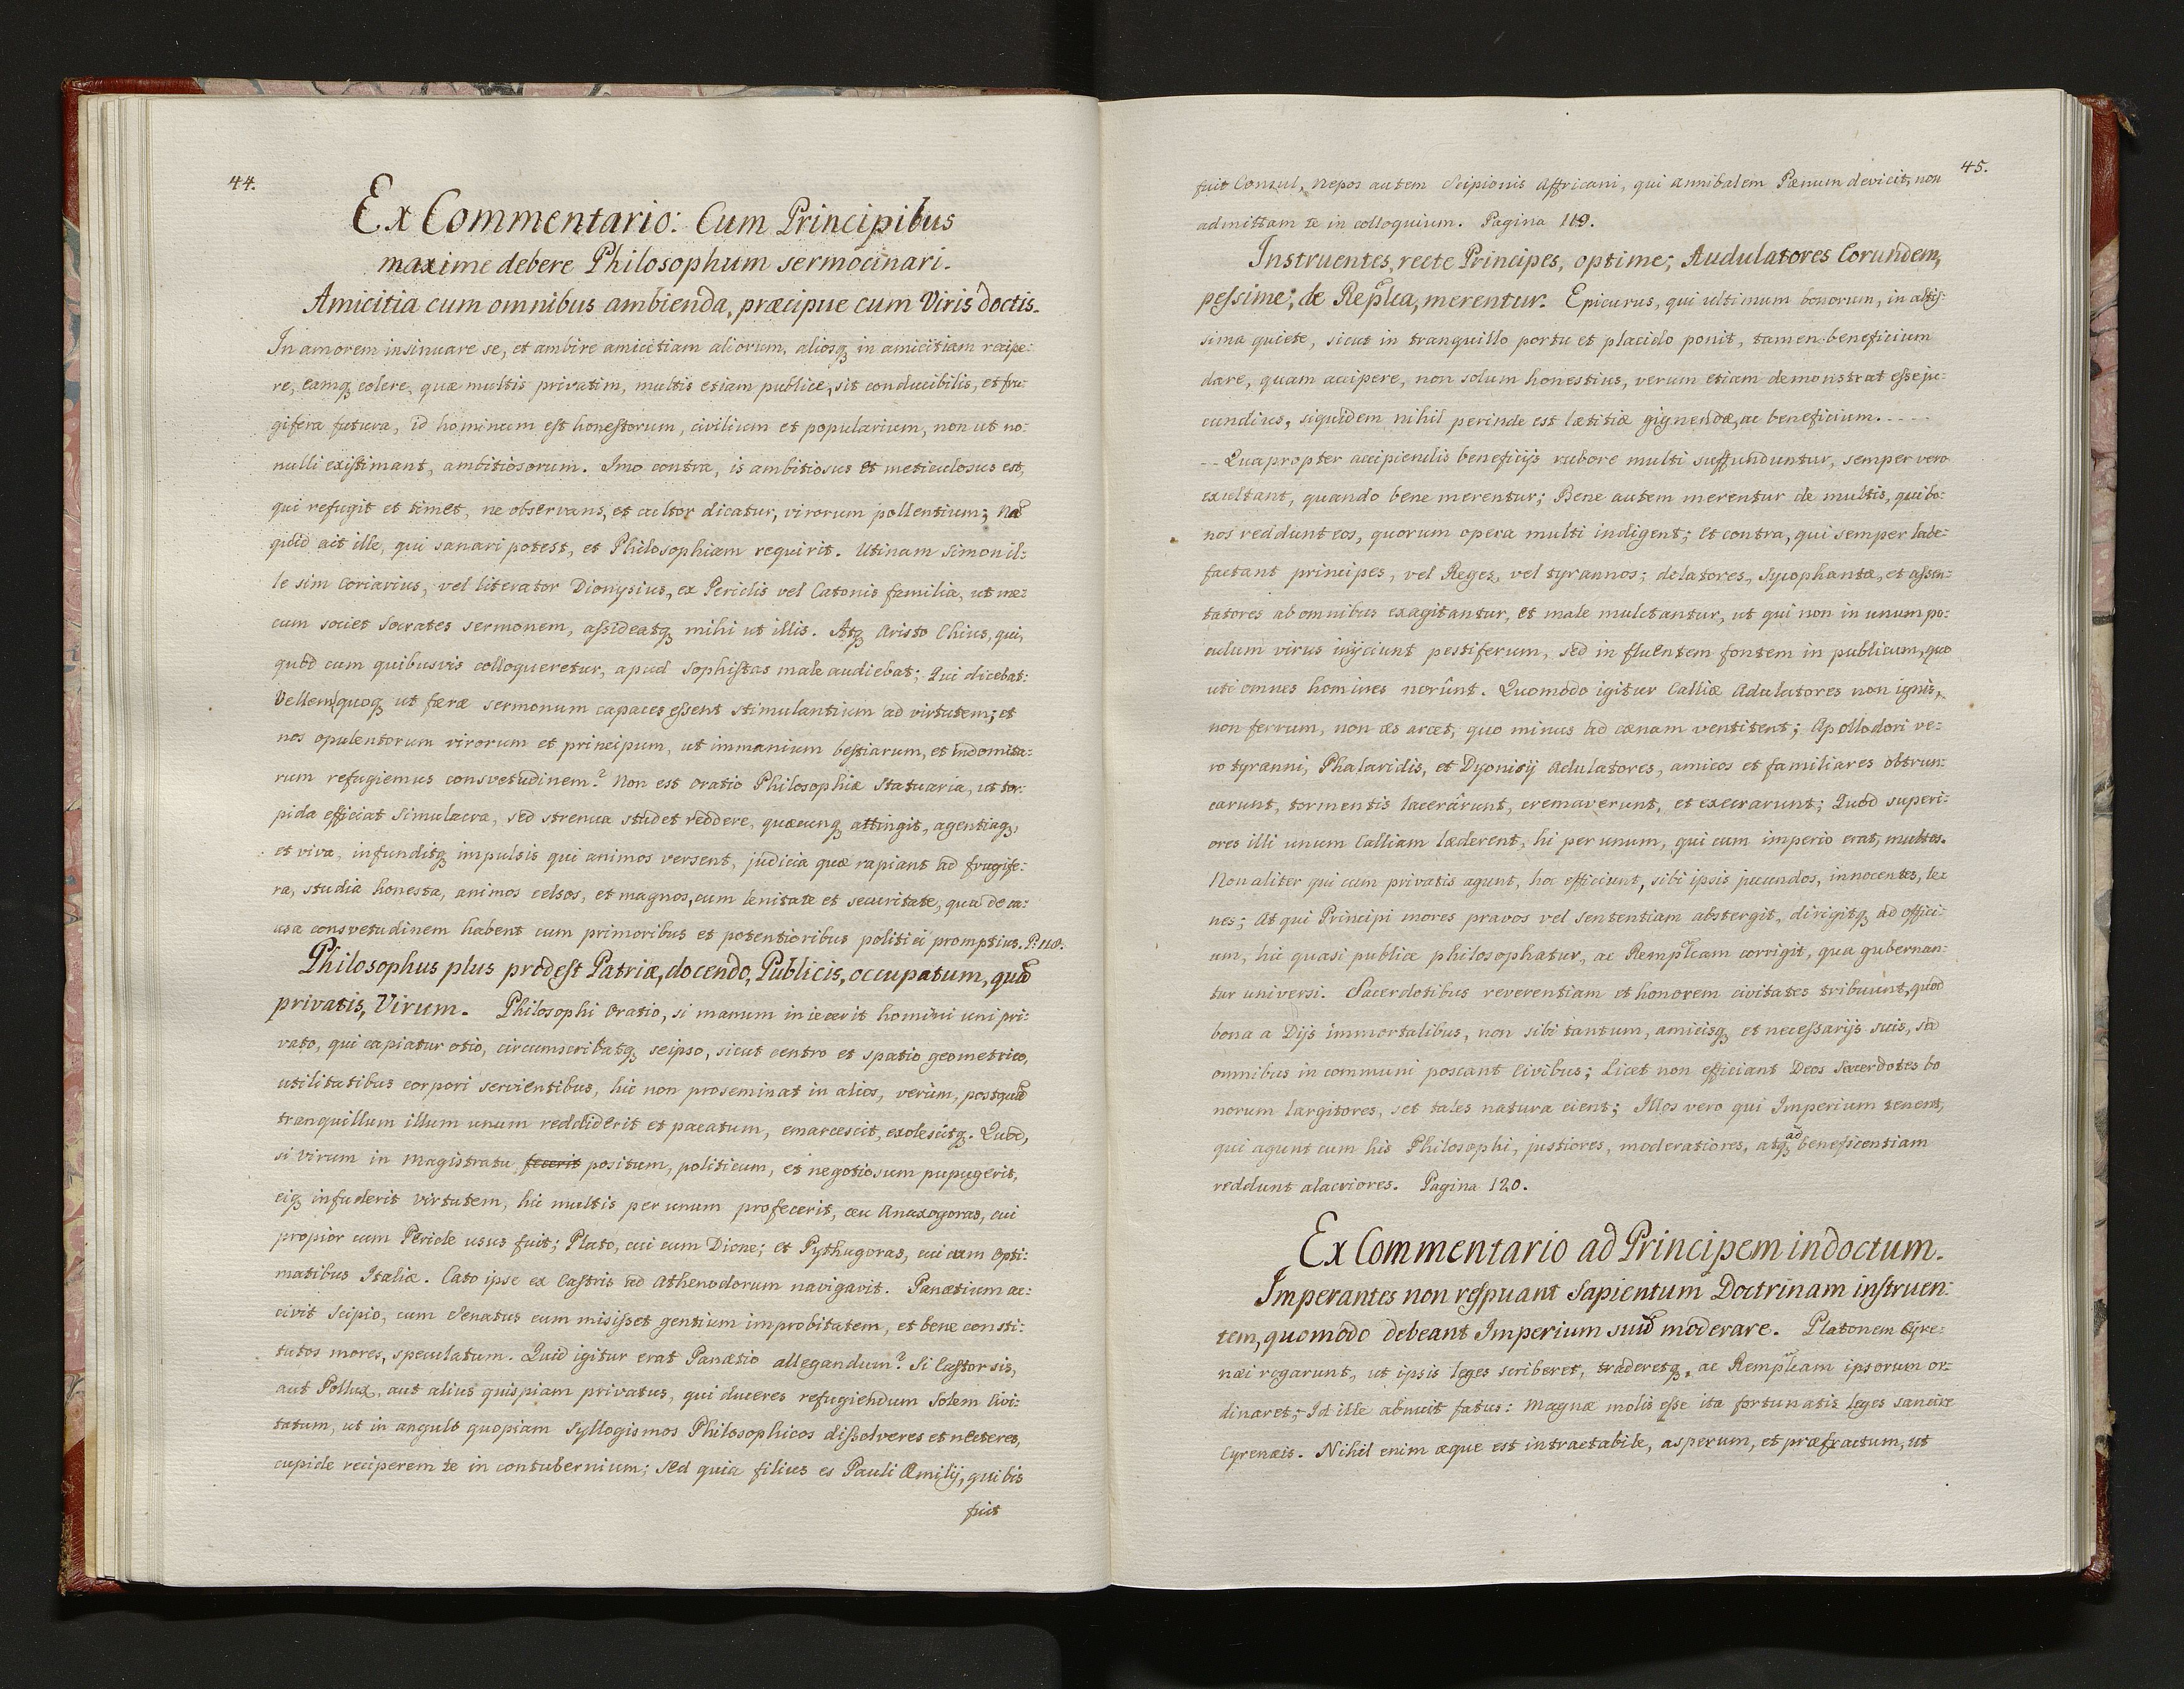 44.
Ex Commentario: Cum Principibus
maxime debere Philosophum sermocinari.
Amicitia cum omnibus ambienda, præcipue cum Viris doctis.
In amorem insinuare se, et ambire amicitiam aliorum, aliosq in amicitiam recipe:
re, eamq colere, quæ multis privatim, multis etiam publice, sit conducibilis, et fru:
gifera futura, id hominum est honestorum, civilium et popularium, non ut no:
nulli existimant, ambitiosorum. Imo contra, is ambitiosus et meticulosus est,
qui refugit et timet, ne observans, et cultor dicatur, virorum pollentium; Nã
quid ait ille, qui sanari potest, et Philosophiam requirit. Utinam Simon il:
le sim Coriarius, vel literator Dionysius, ex Periclis vel Catonis familia, ut me:
cum societ Socrates sermonem, assideatq mihi ut illis. Atq Aristo Chius, qui,
quòd cum quibusvis colloqueretur, apud Sophistas male audiebat; Qui dicebat:
Vellem quoq ut feræ sermonum capaces essent stimulantium ad virtutem; et
nos opulentorum virorum et principum, ut immanium bestiarum, et indomita:
rum refugiemus consvetudinem? Non est oratio Philosophiæ Statuaria, ut tor:
pida efficiat Simulacra, sed strenua studet reddere, quæcunq attingit, agentiaq,
et viva, infunditq impulsis qui animos versent, judicia quæ rapiant ad frugife:
ra, studia honesta, animos celsos, et magnos, cum lenitate et securitate, qua de ca:
usa consvetudinem habent cum primoribus et potentioribus politici promptius. P. 118.
Philosophus plus prodest Patriæ, docendo, Publicis, occupatum, quã
privatis, Virum. Philosophi Oratio, si manum iniecerit homini uni pri:
vato, qui capiatur otio, circumscribatq seipso, sicut centro et spatio geometrico,
utilitatibus corpori servientibus, hic non proseminat in alios, verùm, postquã
tranquillum illum unum reddiderit et pacatum, emarcescit, exolescitq. Quòd,
si virum in Magistratu fecerit positum, politicum, et negotiosum pupugerit,
eiq infuderit virtutem, hic multis per unum profecerit, ceu Anaxogoras, cui
propior cum Pericle usus fuit; Plato, cui cum Dione; et Pythagoras, cui cum Opti:
matibus Italiæ. Cato ipse ex Castris ad Athenodorum navigavit. Panætium ac:
civit Scipio, cum Senatus eum misisset gentium improbitatem, et bene consti:
tutos mores, speculatum. Quid igitur erat Panætio allegandum? Si Castor sis,
aut Pollux, aut alius quispiam privatus, qui duceres refugiendum Solem Civi:
tatum, ut in angulo quopiam Syllogismos Philosophicos dissolveres et necteres,
cupide reciperem te in contubernium; Sed quia filius es Pauli Æmilij, qui bis
fuit
45.
fuit Consul, Nepos autem Scipionis Affricani, qui Annibalem Pænum devicit, non
admittam te in colloquium. Pagina 119.
Instruentes, recte Principes, optime; Audulatores Eorundem,
pessime, de Repl̃ica, merentur. Epicurus, qui ultimum bonorum, in altis:
sima quiete, sicut in tranquillo portu et placido ponit, tamen beneficium
dare, quam accipere, non solum honestius, verum etiam demonstrat esse ju:
cundius, siquidem nihil perinde est lætitiæ gignendæ, ac beneficium. - - - -
- - Quapropter accipiendis beneficijs rubore multi suffunduntur, semper vero
exultant, quando bene merentur; Bene autem merentur de multis, qui bo:
nos reddunt eos, quorum opera multi indigent; Et contra, qui semper labe:
factant principes, vel Reges, vel tyrannos; delatores, Sycophantæ, et assen:
tatores ab omnibus exagitantur, et male mulctantur, ut qui non in unum po:
culum virus injiciunt pestiferum, sed in fluentem fontem in publicum, quo
uti omnes homines norûnt. Quomodo igitur Calliæ Adulatores non ignis,
non ferrum, non æs arcet, quo minus ad cænam ventitent; Apollodori ve:
ro tyranni, Phalaridis, et Dyonisij Adulatores, amicos et familiares obtrun:
carunt, tormentis lacerârunt, cremaverunt, et execrarunt; Quòd superi:
ores illi unum Calliam læderent, hi per unum, qui cum imperio erat, multos.
Non aliter qui cum privatis agunt, hoc efficiunt, sibi ipsis jucundos, innocentes, le
nes; At qui Principi mores pravos vel sententiam abstergit, dirigitq ad offici:
um, hic quasi publice philosophatur, ac Rempl̃icam corrigit, qua gubernan:
tur universi. Sacerdotibus reverentiam et honorem civitates tribuunt, quod
bona a Dijs immortalibus, non sibi tantum, amicisq et necessarijs suis, sed
omnibus in communi poscant Civibus; Licet non efficiant Deos Sacerdotes bo
norum largitores, set tales natura cient; Illos vero qui Imperium tenent,
qui agunt cum his Philosophi, justiores, moderatiores, atq ad beneficentiam
reddunt alacriores. Pagina 120.
Ex Commentario ad Principem indoctum.
Imperantes non respuant Sapientum Doctrinam instruen:
tem, quomodo debeant Imperium suũ moderare. Platonem Cyre:
næi rogarunt, ut ipsis leges scriberet, traderetq, ac Rempl̃icam ipsorum or:
dinaret; Id ille abnuit fatus: Magnæ molis esse ita fortunatis leges sancire
Cyrenæis. Nihil enim æque est intractabile, asperum, et præfractum, ut